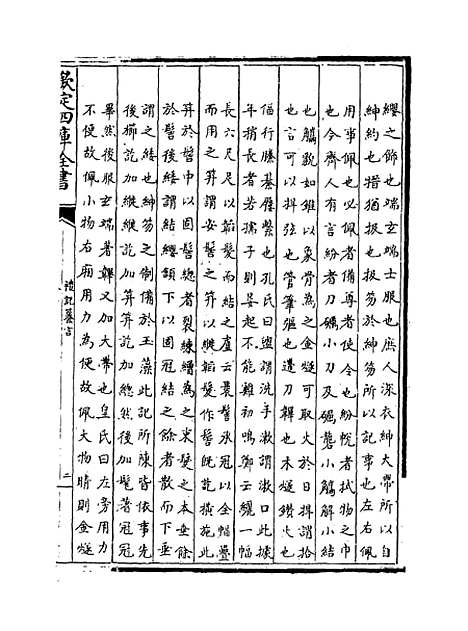 纓之飾也端玄端士服也庶人深衣紳大帶所以自
紳約也搢猶扱也扱笏於紳笏所以記事也左右佩
用事佩也必佩者備尊者使令也紛帨者拭物之巾
也今齊人有言紛者刀礪小刀及礪礱小觿解小結
也觿貌如錐以象骨為之金燧可取火於日捍謂拾
也言可以捍弦也管筆彄也遰刀鞞也木燧鑽火也
偪行縢綦屨繫也孔氏曰盥謂洗手漱謂漱口此據
年稍長者若孺子則晏起不能雞初鳴鄭云縰一幅
長六尺足以韜髮而結之盧云裹髻承冠以全幅疊
而用之笄謂安髻之笄以縰韜髮作髻既訖橫施此
笄於髻中以固髻總者裂練繒為之束髮之本垂餘
於髻後緌謂結纓頷下以固冠結之餘者散而下垂
謂之緌也紳笏之制備於玉藻此記所陳皆依事先
後櫛訖加縰縰訖加笄笄訖加總然後加髦著冠冠
畢然後服玄端著韠又加大帶也皇氏曰左旁用力
不便故佩小物右廂用力為便故佩大物晴則金燧
欽定四庫全書
禮記纂言
二